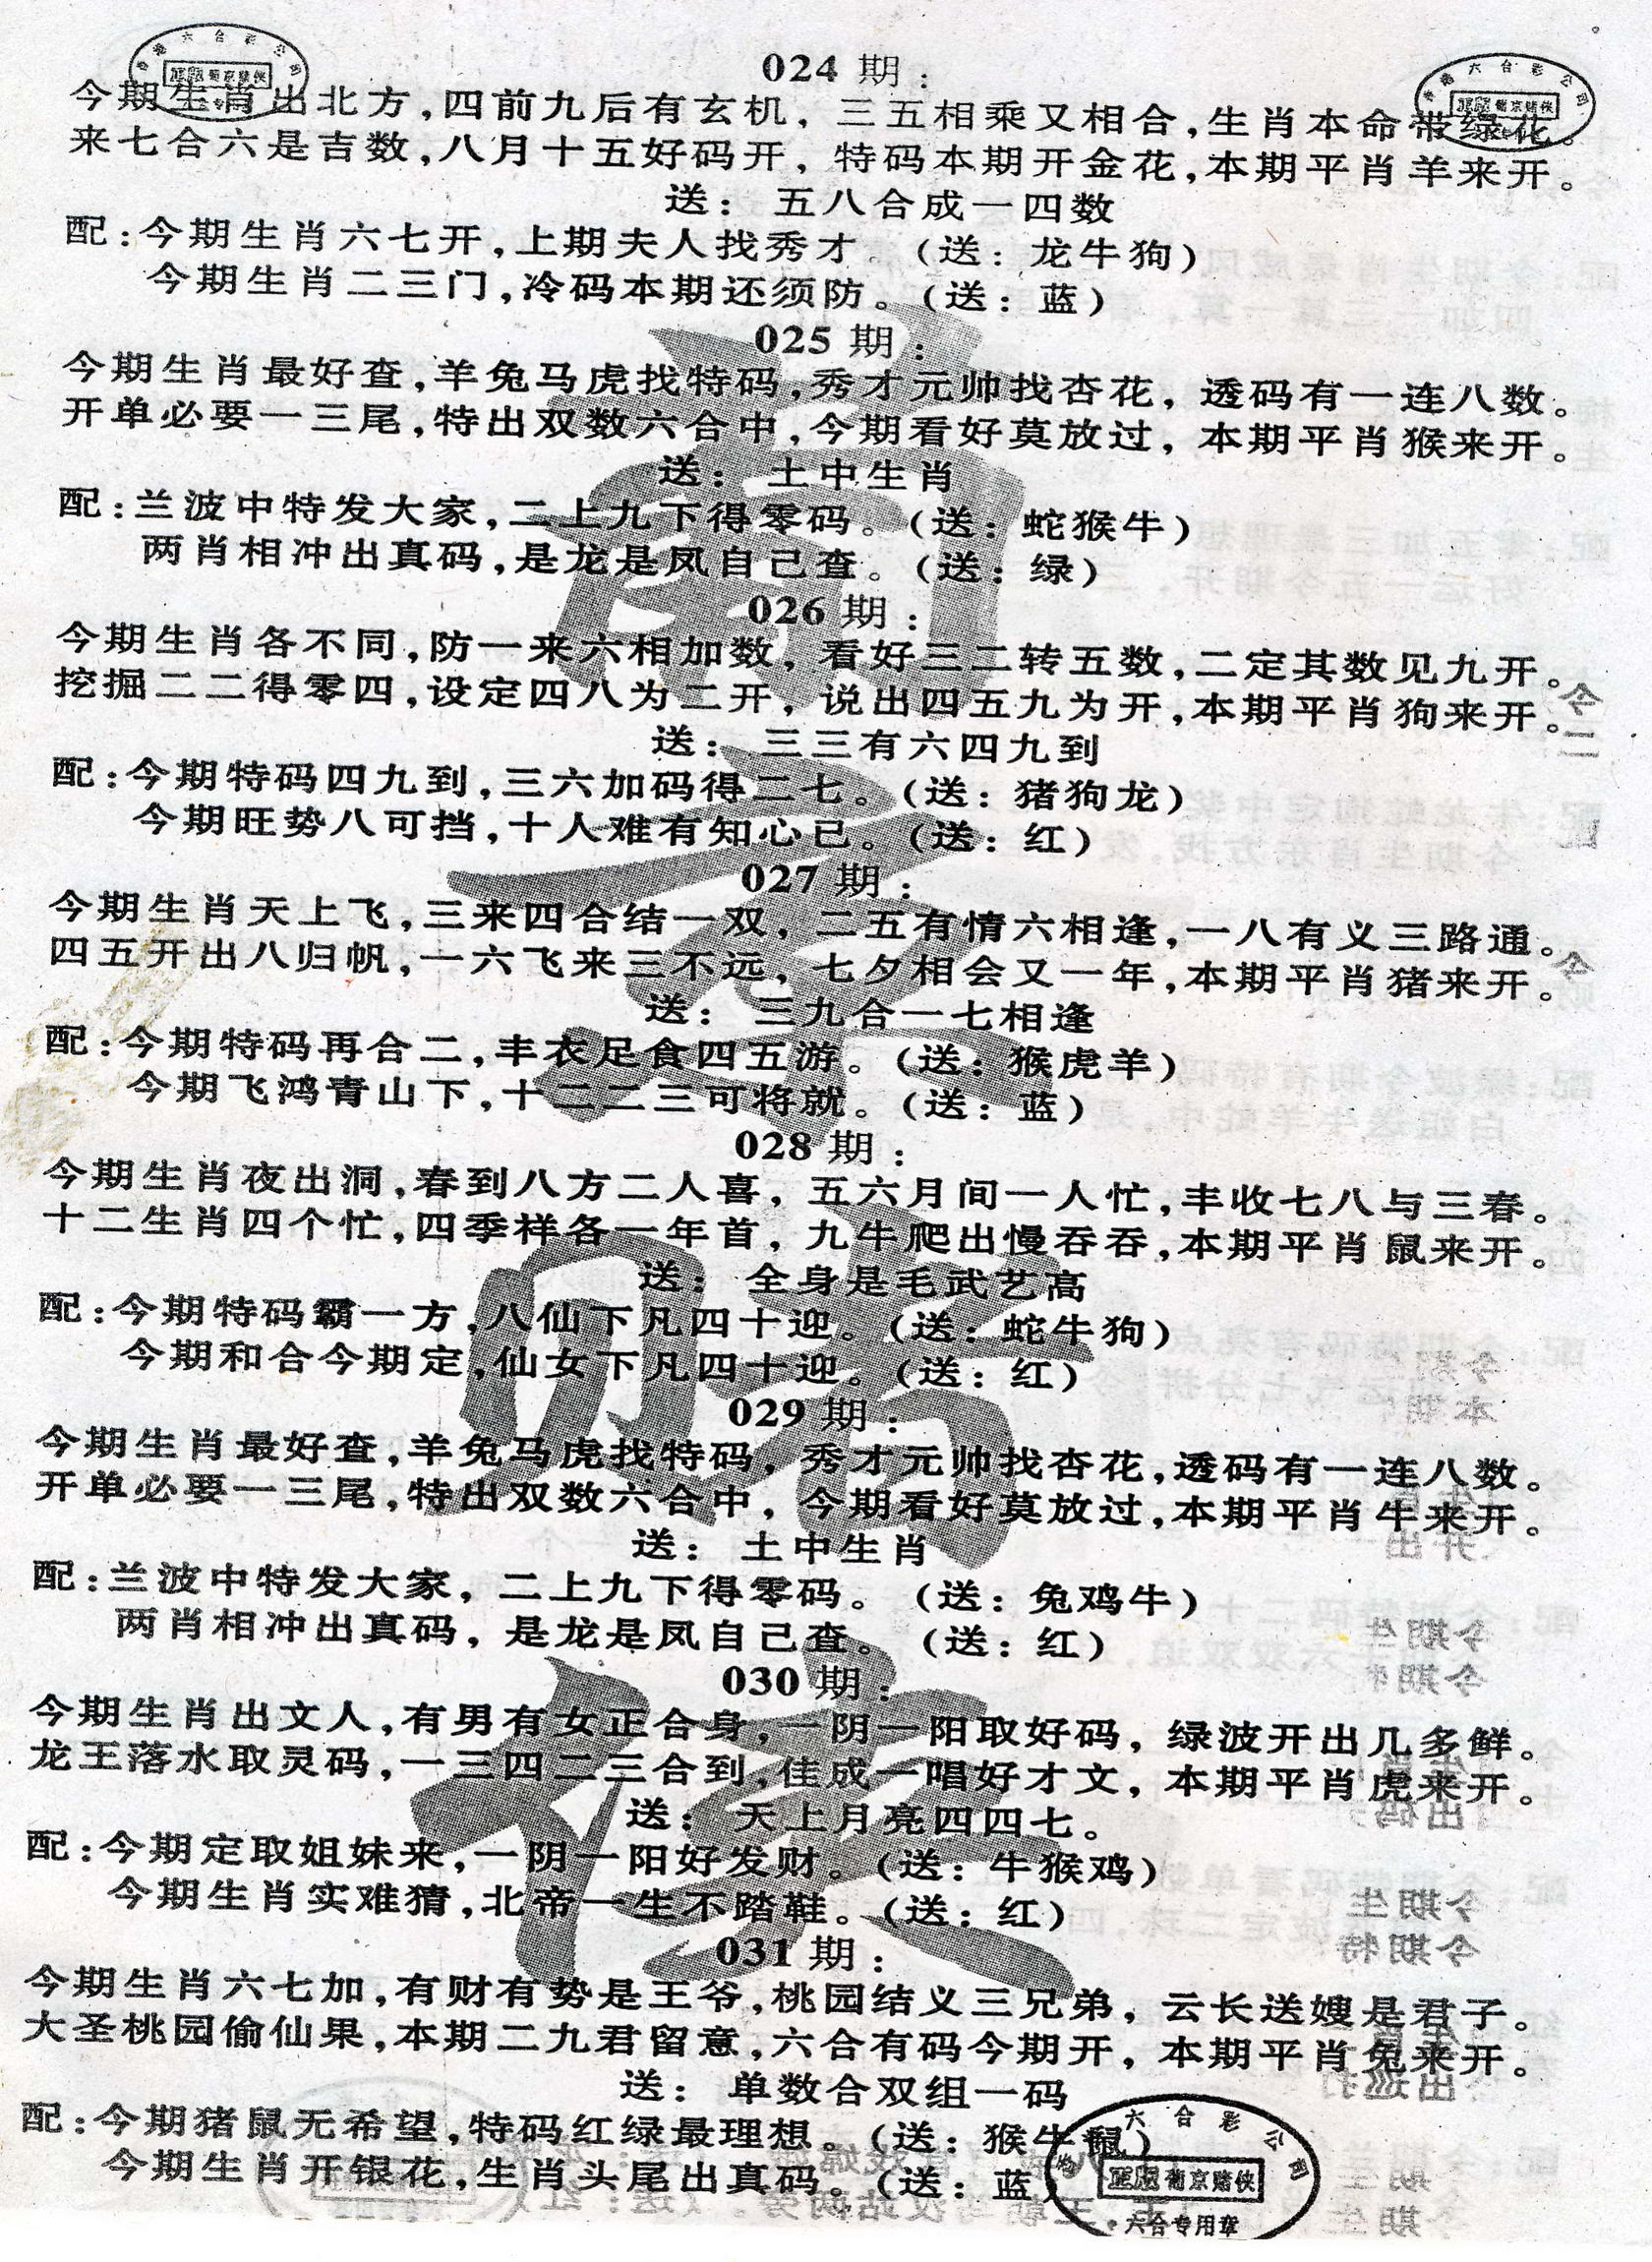 024 期：
今期生肖出北方，四前九后有玄机，三五相乘又相合，生肖本命带绿花。
来七合六是吉数，八月十五好码开，特码本期开金花，本期平肖羊来开。
送：五八合成一四数
配：今期生肖六七开，上期夫人找秀才。（送：龙牛狗）
今期生肖二三门，冷码本期还须防。（送：蓝）
025 期：
今期生肖最好查，羊兔马虎找特码，秀才元帅找杏花，透码有一连八数。
开单必要一三尾，特出双数六合中，今期看好莫放过，本期平肖猴来开。
送：土中生肖
配：兰波中特发大家，二上九下得零码。（送：蛇猴牛）
两肖相冲出真码，是龙是凤自己查。（送：绿）
026 期：
今期生肖各不同，防一来六相加数，看好三二转五数，二定其数见九开。
挖掘二二得零四，设定四八为二开，说出四五九为开，本期平肖狗来开。
送：三三有六四九到
配：今期特码四九到，三六加码得二七。（送：猪狗龙）
今期旺势八可挡，十人难有知心已。（送：红）
027 期：
今期生肖天上飞，三来四合结一双，二五有情六相逢，一八有义三路通。
四五开出八归帆，一六飞来三不远，七夕相会又一年，本期平肖猪来开。
送：三九合一七相逢
配：今期特码再合二，丰衣足食四五游。（送：猴虎羊）
今期飞鸿青山下，十二二三可将就。（送：蓝）
028 期：
今期生肖夜出洞，春到八方二人喜，五六月间一人忙，丰收七八与三春。
十二生肖四个忙，四季样各一年首，九牛爬出慢吞吞，本期平肖鼠来开。
送：全身是毛武艺高
配：今期特码霸一方，八仙下凡四十迎。（送：蛇牛狗）
今期和合今期定，仙女下凡四十迎。（送：红）
029 期：
今期生肖最好查，羊兔马虎找特码，秀才元帅找杏花，透码有一连八数。
开单必要一三尾，特出双数六合中，今期看好莫放过，本期平肖牛来开。
送：土中生肖
配：兰波中特发大家，二上九下得零码。（送：兔鸡牛）
两肖相冲出真码，是龙是凤自己查。（送：红）
030 期：
今期生肖出文人，有男有女正合身，一阴一阳取好码，绿波开出几多鲜。
龙王落水取灵码，一三四二三合到，佳成一唱好才文，本期平肖虎来开。
送：天上月亮四四七。
配：今期定取姐妹来，一阴一阳好发财。（送：牛猴鸡）
今期生肖实难猜，北帝一生不踏鞋。（送：红）
031 期：
今期生肖六七加，有财有势是王爷，桃园结义三兄弟，云长送嫂是君子。
大圣桃园偷仙果，本期二九君留意，六合有码今期开，本期平肖兔来开。
送：单数合双组一码
配：今期猪鼠无希望，特码红绿最理想。（送：猴牛鼠）
今期生肖开银花，生肖头尾出真码。（送：蓝）
六合彩公司
葡京赌侠
六合专用章